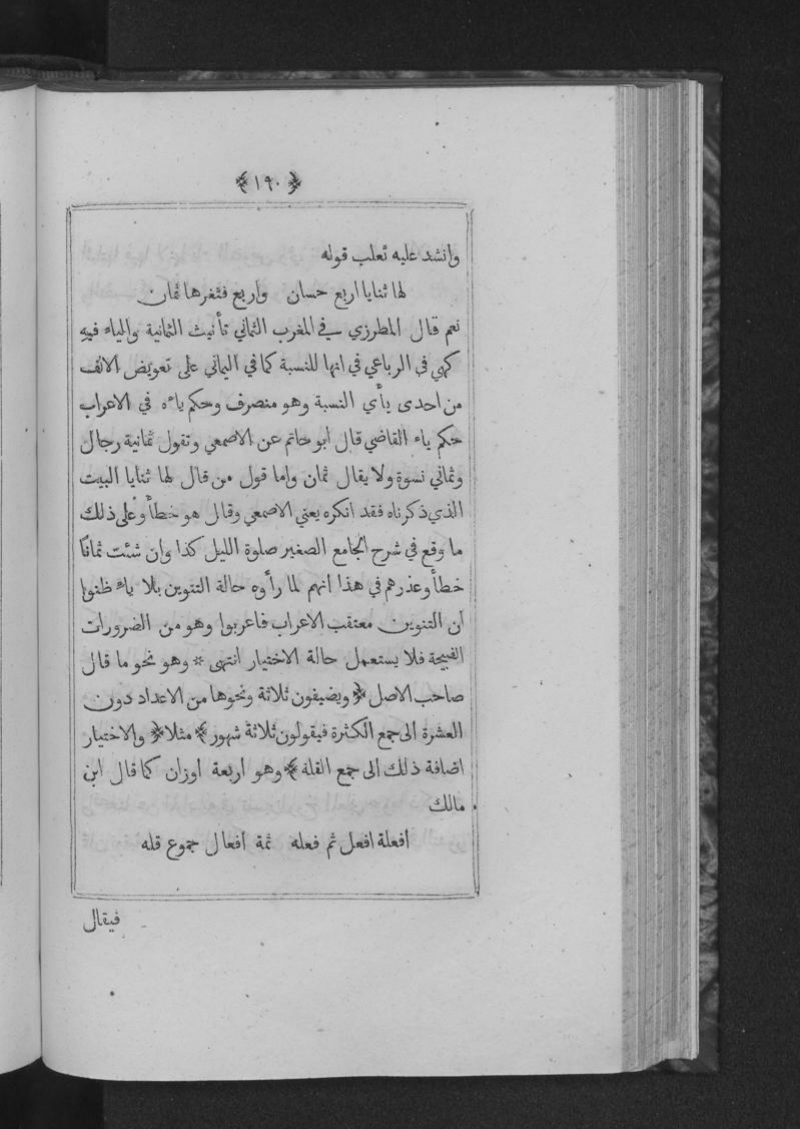 ﴿١٩٠﴾
وانشد عليه ثعلب قوله
لها ثنايا اربع حسان واربع فثغرها ثمان
نعم قال المطرزي في المغرب الثماني تأنيث الثمانية والياء فيه
كهي في الرباعي في انها للنسبة كما في اليماني على تعويض الالف
من احدى يأي النسبة وهو منصرف وحكم ياءه في الاعراب
حكم ياء القاضي قال ابو حاتم عن الاصمعي وتقول ثمانية رجال
وثماني نسوة ولا يقال ثمان واما قول من قال لها ثنايا البيت
الذي ذكرناه فقد انكره يعني الاصمعي وقال هو خطأ وعلى ذلك
ما وقع في شرح الجامع الصغير صلوة الليل كذا وان شئت ثمانًا
خطأ وعذرهم في هذا انهم لما رأوه حالة التنوين بلا ياء ظنوا
ان التنوين معتقب الاعراب فاعربوا وهو من الضرورات
القبيحة فلا يستعمل حالة الاختيار انتهى * وهو نحو ما قال
صاحب الاصل ﴿ ويضيفون ثلاثة ونحوها من الاعداد دون
العشرة الى جمع الكثرة فيقولون ثلاثة شهور ﴾ مثلا ﴿ والاختيار
اضافة ذلك الى جمع القلة ﴾ وهو اربعة اوزان كما قال ابن
مالك
افعلة افعل ثم فعله ثمة افعال جموع قله
فيقال